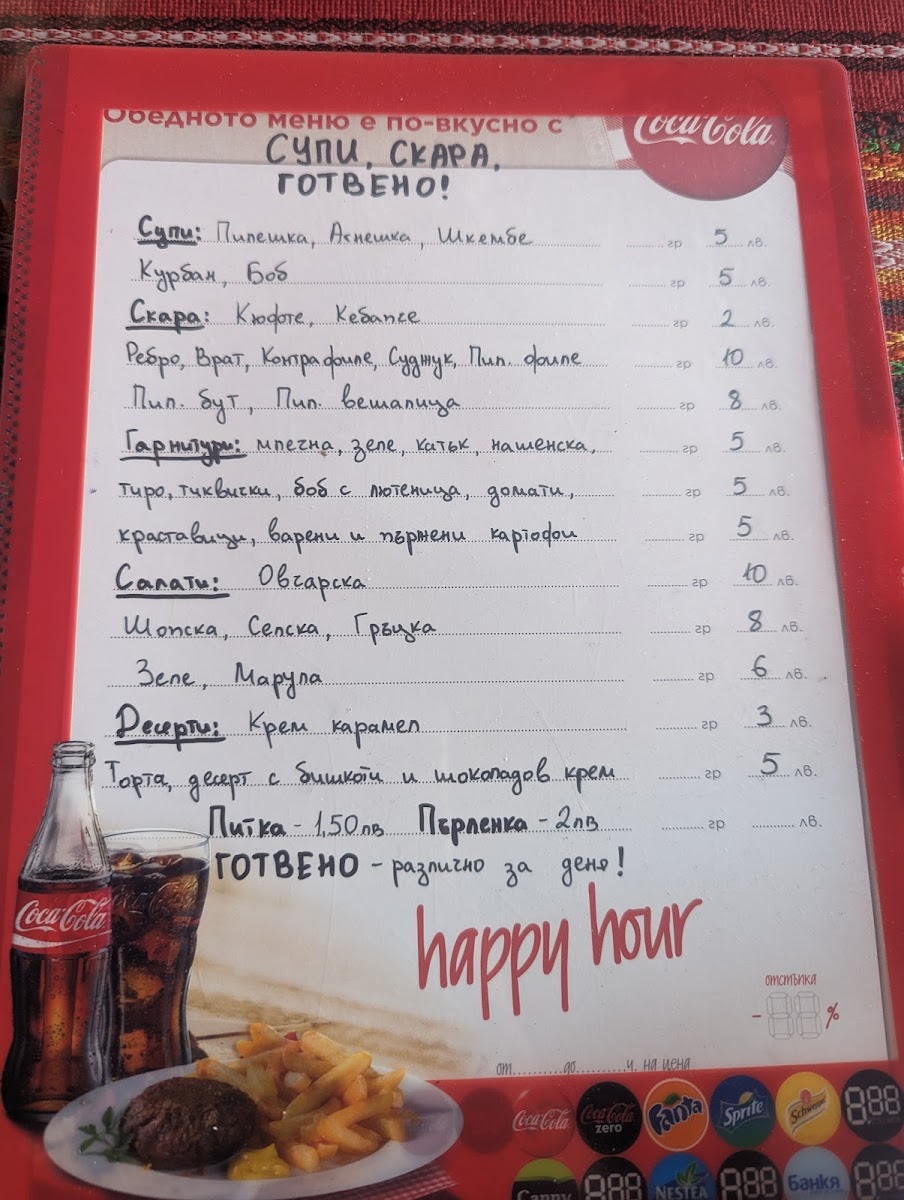 Обедното меню е по-вкусно с
Coca-Cola
СУПИ, СКАРА,
ГОТВЕНО!
Супи: Пилешка, Агнешка, Шкембе гр 5 лв.
Курбан, Боб гр 5 лв.
Скара: Кюфте, Кебапче гр 2 лв.
Ребро, Врат, Контрафиле, Суджук, Пил. филе гр 10 лв.
Пил. бут, Пил. вешалица гр 8 лв.
Гарнитури: млечна, зеле, катък, нашенска, гр 5 лв.
тиро, тиквички, боб с лютеница, домати, гр 5 лв.
краставици, варени и пържени картофи гр 5 лв.
Салати: Овчарска гр 10 лв.
Шопска, Селска, Гръцка гр 8 лв.
Зеле, Марула гр 6 лв.
Десерти: Крем карамел гр 3 лв.
Торта, десерт с бишкоти и шоколадов крем гр 5 лв.
Питка - 1,50лв Пърленка - 2лв гр лв.
ГОТВЕНО - различно за деня!
happy hour
отстъпка
- 88 %
от..........до..........ч. на цена
Coca-Cola
Coca-Cola
Coca-Cola zero
Fanta
Sprite
Schweppes
888
Cappy
888
NESTEA
888
Банкя
888